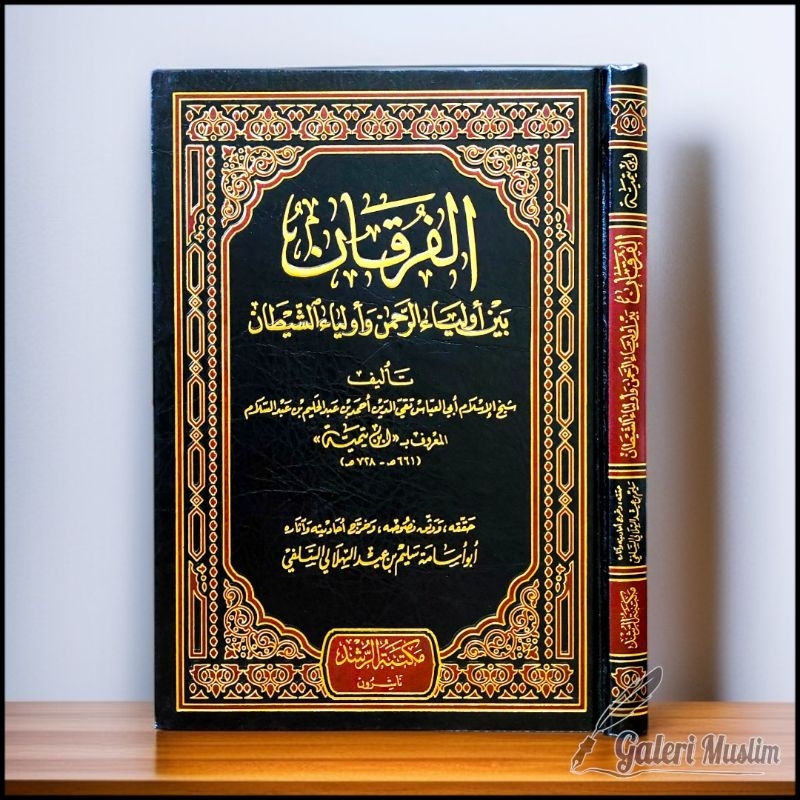 الفرقان
بين أولياء الرحمن وأولياء الشيطان
تأليف
شيخ الإسلام أبي العباس تقي الدين أحمد بن عبد الحليم بن عبد السلام
المعروف بـ «ابن تيمية»
(٦٦١هـ - ٧٢٨هـ)
حققه، ووثق نصوصه، وخرج أحاديثه وآثاره
أبو أسامة سليم بن عيد الهلالي السلفي
مكتبة الرشد
ناشرون
ابن تيمية
الفرقان بين أولياء الرحمن وأولياء الشيطان
حققه، وخرج أحاديثه وآثاره
سليم بن عيد الهلالي السلفي
مكتبة الرشد
ناشرون
Galeri Muslim